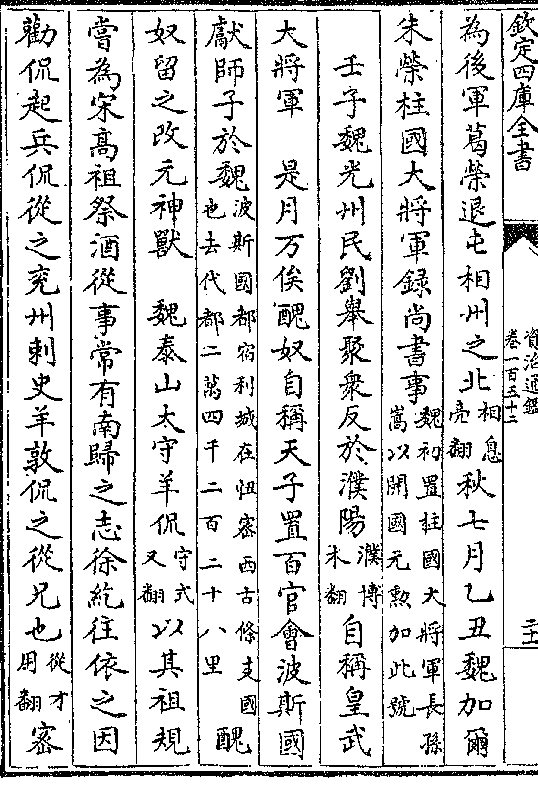 欽定四庫全書
資治通鑑
卷一百五十二
二十
為後軍葛榮退屯相州之北相息亮翻秋七月乙丑魏加爾
朱榮柱國大將軍録尚書事魏初置柱國大將軍長孫嵩以開國元勲加此號
壬子魏光州民劉舉聚衆反於濮陽濮博木翻自稱皇武
大將軍　是月万俟醜奴自稱天子置百官會波斯國
獻師子於魏波斯國都宿利城在忸密西古條支國也去代都二萬四千二百二十八里醜
奴留之改元神獸　魏泰山太守羊侃守式又翻以其祖規
嘗為宋髙祖祭酒從事常有南歸之志徐紇往依之因
勸侃起兵侃從之兖州刺史羊敦侃之從兄也從才用翻宻